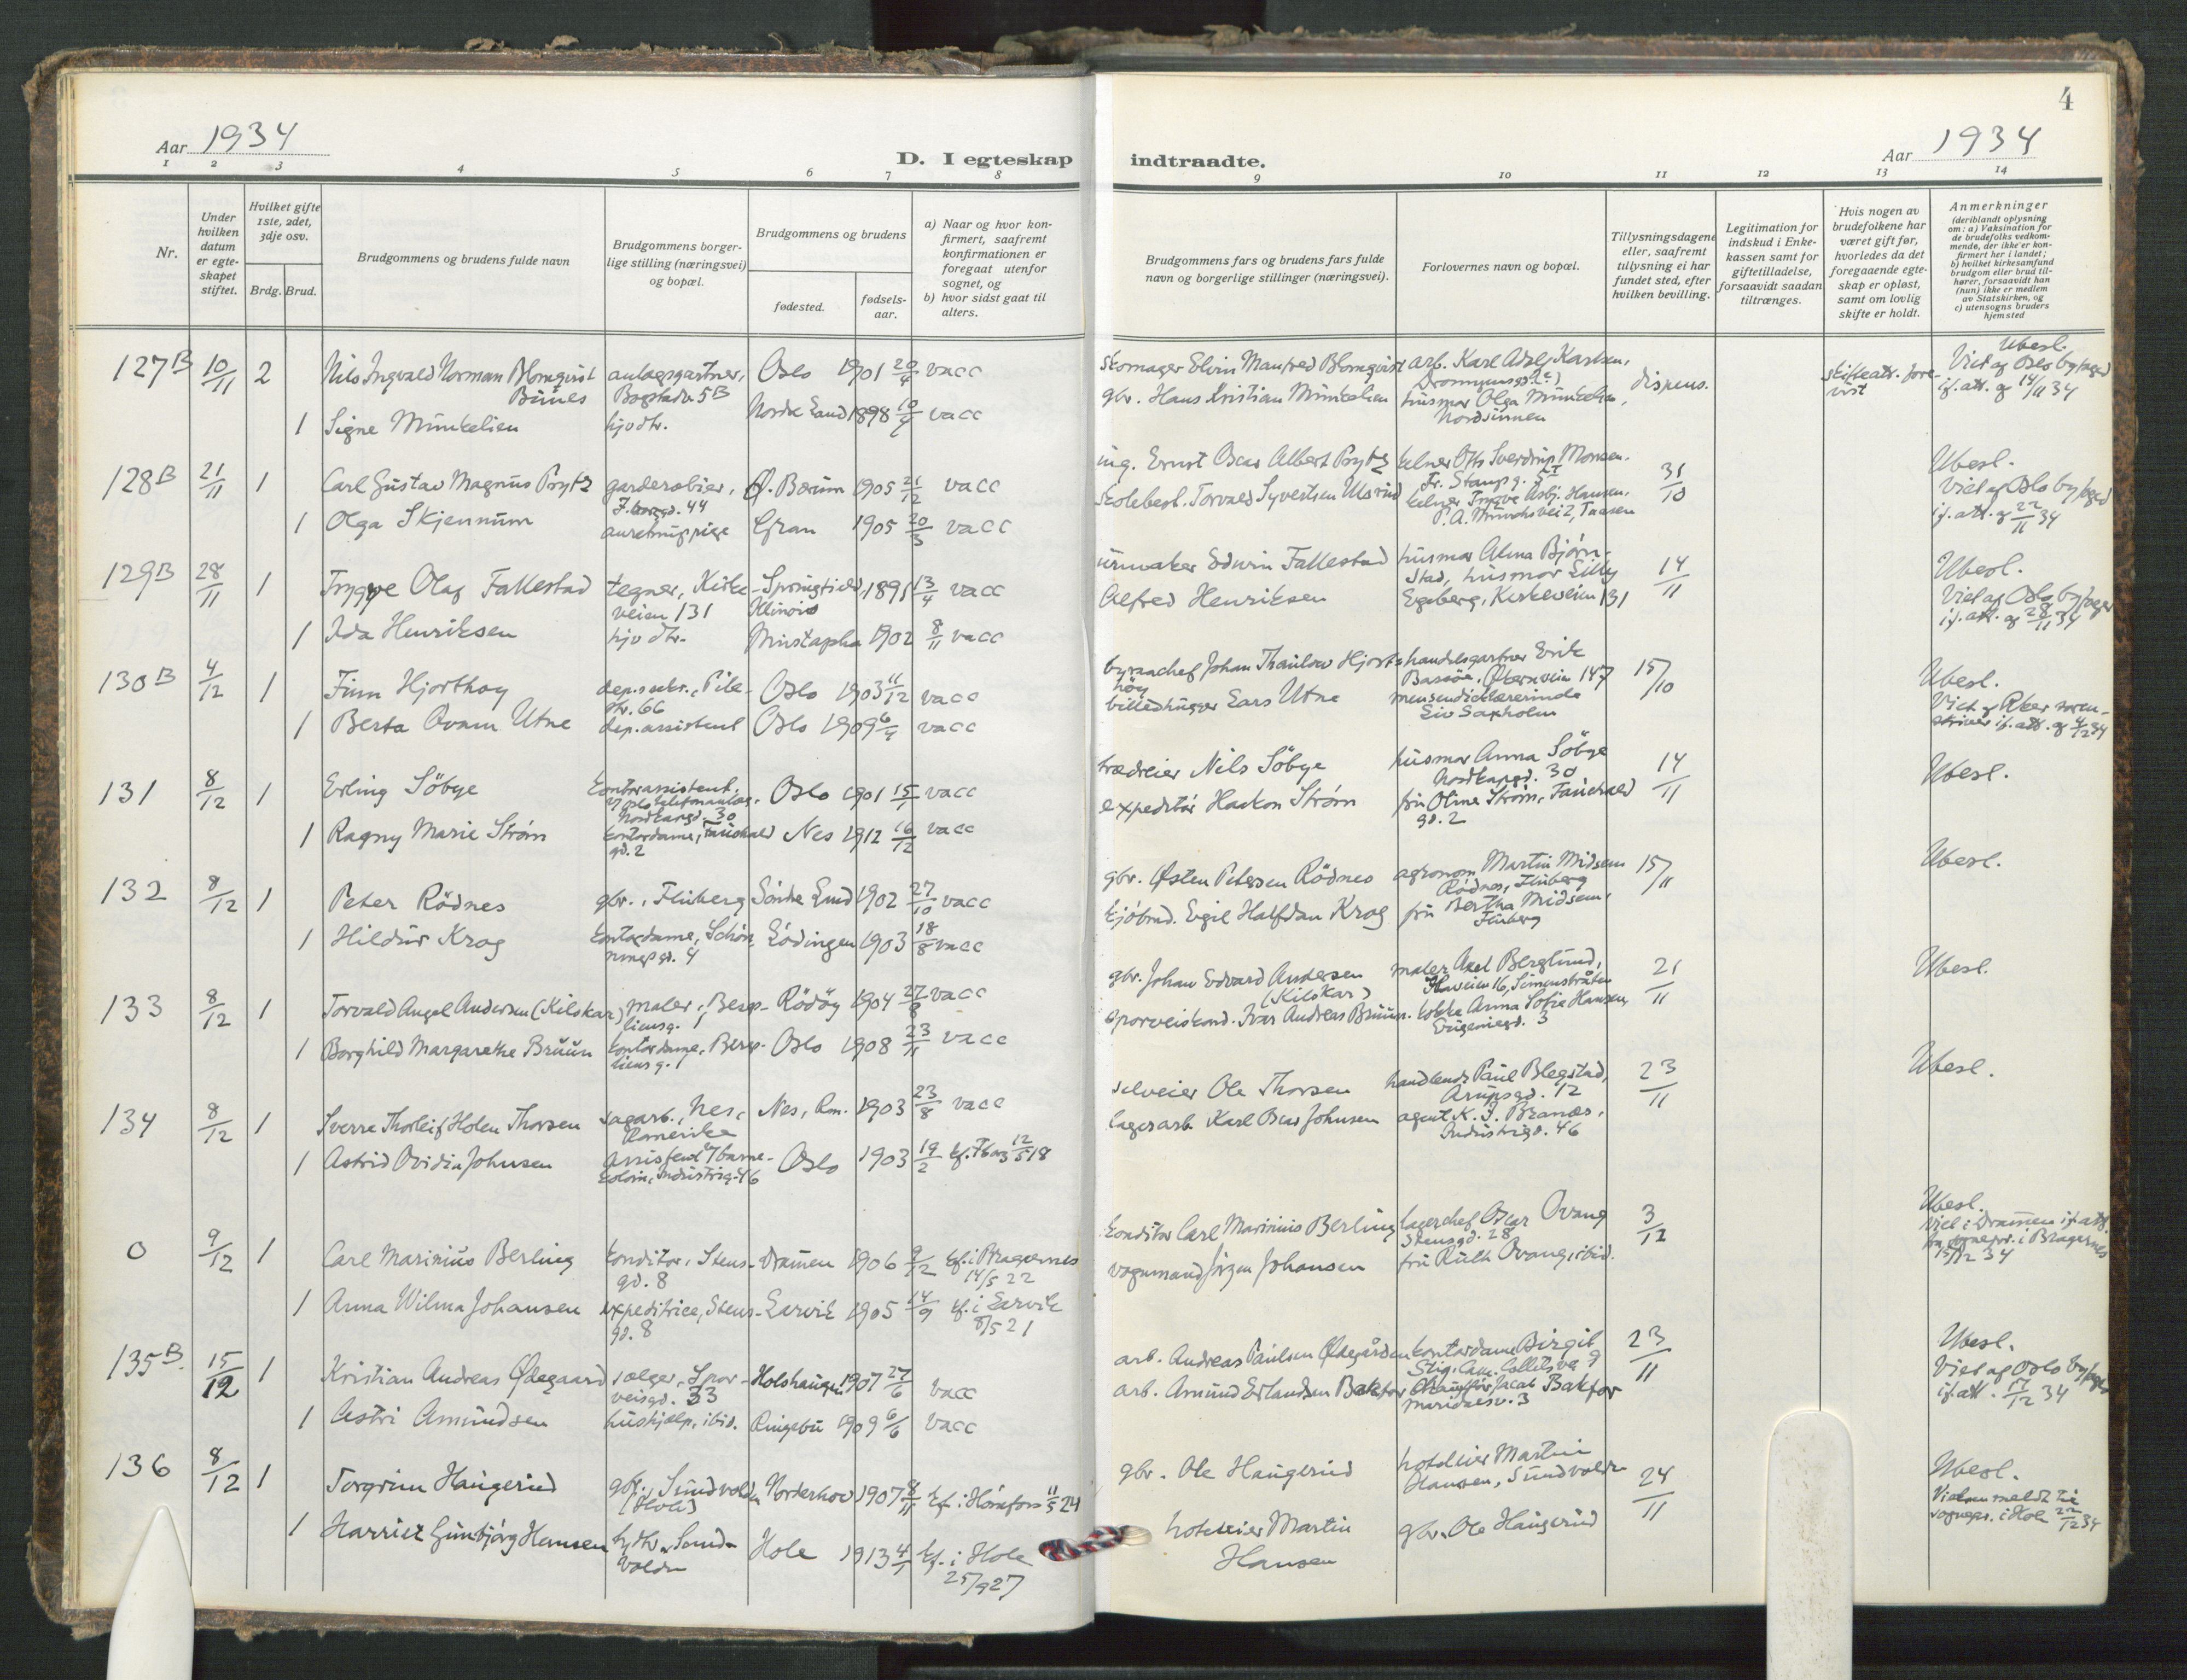 4
Aar 1934
D. I egteskap
indtraadte.
Aar 1934
1 2 3 4 5 6 7 8 9 10 11 12 13 14
Nr.
Under hvilken datum er egteskapet stiftet.
Hvilket gifte 1ste, 2det, 3dje osv.
Brdg. Brud.
Brudgommens og brudens fulde navn
Brudgommens borgerlige stilling (næringsvei) og bopæl.
Brudgommens og brudens
fødested.
fødselsaar.
a) Naar og hvor konfirmert, saafremt konfirmationen er foregaat utenfor sognet, og
b) hvor sidst gaat til alters.
Brudgommens fars og brudens fars fulde navn og borgerlige stillinger (næringsvei).
Forlovernes navn og bopæl.
Tillysningsdagene eller, saafremt tillysning ei har fundet sted, efter hvilken bevilling.
Legitimation for indskud i Enkekassen samt for giftetilladelse, forsaavidt saadan tiltrænges.
Hvis nogen av brudefolkene har været gift før, hvorledes da det foregaaende egteskap er opløst, samt om lovlig skifte er holdt.
Anmerkninger
(deriblandt oplysning om: a) Vaksination for de brudefolks vedkommende, der ikke er konfirmert her i landet; b) hvilket kirkesamfund brudgom eller brud tilhører, forsaavidt han (hun) ikke er medlem av Statskirken, og c) utensogns bruders hjemsted
127B 10/11 2 Nils Ingvald Norman Blomqvist Bünes anlagsgartner, Bogstadv. 5B Oslo 1901 20/4 vacc
skomager Elvin Manfred Blomqvist arb. Karl Adolf Karlsen, dispens. skifteatt. forevist Ubesl. Viet af Oslo byfoged if. att. af 14/11 34
1 Signe Münkelien hjv dtr. Nordre Land 1898 vacc
gbr. Hans Kristian Münkelien husmor Olga Münkelien, Nordsinnen
128B 21/11 1 Carl Gustav Magnus Prytz garderobier, 44 Ø. Bærum 1905 21/12 vacc
ing. Ernst Oscar Albert Prytz kelner Otto Sverdrup Monsen. 31/10 Ubesl. Viet af Oslo byfoged if. att. af 22/11 34
1 Olga Skjennum anretningspige Gran 1905 20/3 vacc
skolebest. Torvald Syvertsen kelner Trygve Asbj. Hansen, P. A. Münchs vei 2, Taasen
129B 28/11 1 Trygve Olaf Fallestad tegner, Kirkeveien 131 Springfield, Illinois 1895 13/4 vacc
urmaker Edwin Fallestad husmor Alma Bjørnstad, husmor Lilly Egeberg, Kirkeveien 131 14/11 Ubesl. Viet af Oslo byfoged if. att. af 28/11 34
1 Ida Henriksen hjv dtr. Mustapha 1902 8/11 vacc
Alfred Henriksen
130B 4/12 1 Finn Hjorthøy dep. sekr., Pilestr. 66 Oslo 1903 11/12 vacc
byraachef Johan Thaulow Hjorthøy handelsgartner Erik Bassøe, Økernveien 147 15/10 Ubesl. Viet af Aker sorenskriver if. att. af 4/12 34
1 Berta Ovam Utne dep. assistent Oslo 1909 6/4 vacc
billedhugger Lars Utne mensendiecklærerinde Liv Saxholm
131 8/12 1 Erling Söbye kontorassistent v/ Oslo telefonanlæg, Nordkapgd. 30 Oslo 1901 15/1 vacc
trædreier Nils Söbye husmor Anna Söbye Nordkapgd. 30 14/11 Ubesl.
1 Ragny Marie Strøm kontordame, Fauchaldgd. 2 Nes 1912 16/12 vacc
expeditör Haakon Strøm fru Oline Strøm, Fauchaldgd. 2
132 8/12 1 Peter Rödnes gbr., Fluberg Søndre Land 1902 27/10 vacc
gbr. Østen Petersen Rödnes agronom Martin Midsem Rødnes, Fluberg 15/11 Ubesl.
1 Hildur Krog kontordame, Schøningsgd. 4 Lødingen 1903 18/8 vacc
kjøbmd. Egil Halfdan Krog fru Bertha Midsem, Fluberg
133 8/12 1 Torvald Angel Andersen (Kilskar) maler, Bergsliensg. 1 Rödöy 1904 27/8 vacc
gbr. Johan Edvard Andersen (Kilskar) maler Axel Berglund, 16, Simenstråten 21/11 Ubesl.
1 Borghild Margarethe Bruun kontordame, Bergsliensg. 1 Oslo 1908 23/11 vacc
sporveiskond. Ivar Andreas Bruun. kokke Anna Sofie Hansen, Eugeniesgd. 3
134 8/12 1 Sverre Thorleif Holen Thorsen sagarb., Nes, Romerike Nes, Rom. 1903 23/8 vacc
selveier Ole Thorsen handlende Paul Blegstad, Arupsgd. 12 23/11 Ubesl.
1 Astrid Ovidia Johnsen assistent v/ barnekoloni, Industrig. 46 Oslo 1903 19/2 kf. 12/5 18
lagerarb. Karl Oscar Johnsen agent K. J. Branæs, Industrigd. 46
0 9/12 1 Carl Marinius Berling konditor, Stensgd. 8 Dramen 1906 9/12 kf. i Bragernes 14/5 22
konditor Carl Marinius Berling lagerchef Oscar Ovang Stensgd. 28 3/12 Ubesl. Viet i Dramen if. att. fra sognepr. i Bragernes 15/12 34
1 Anna Wilma Johansen expeditrice, Stensgd. 8 Larvik 1905 14/9 kf. i Larvik 8/5 21
vognmand Jörgen Johansen fru Ruth Ovang, ibid.
135B. 15/12 1 Kristian Andreas Ødegaard sælger, Sporveisgd. 33 Holshaugen 1907 27/6 vacc
arb. Andreas Paulsen Ødegården kontordame Birgit Stig, Cam. Collets ve 9 23/11 Ubesl. Viet af Oslo byfoged if. att. 17/12 34
1 Astri Amundsen hushjælp, ibid. Ringebu 1909 6/6 vacc
arb. Amund Erlandsen Bakfor chauffør Jacob Bakfor Maridalsv. 3
136 8/12 1 Torgrim Haugerud gbr., Sundvolden (Hole) Norderhov 1907 8/11 kf. i Hønefoss 11/5 24
gbr. Ole Haugerud hoteleier Martin Hansen, Sundvolden 24/11 Ubesl. Vielsen meldt til sognepr. i Hole 22/12 34
1 Harriet Gunbjörg Hansen hj dtr., Sundvolden Hole 1913 4/1 kf. i Hole 25/9 27
hoteleier Martin Hansen gbr. Ole Haugerud